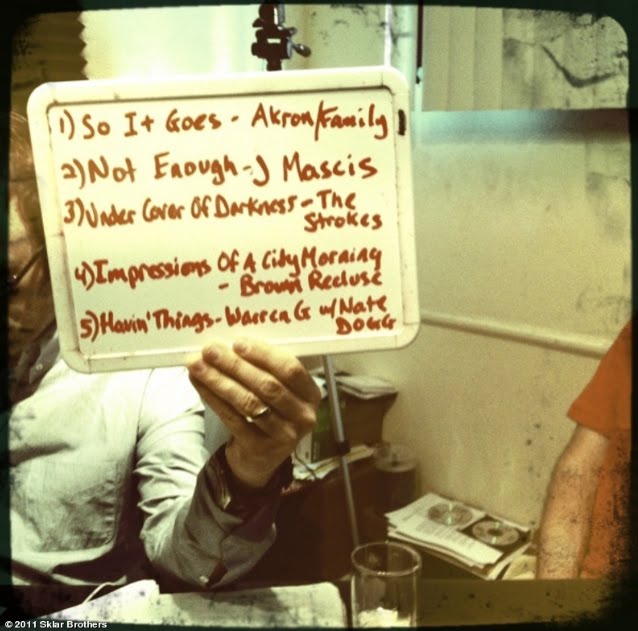 1) So It Goes - Akron/Family
2) Not Enough - J Mascis
3) Under Cover Of Darkness - The
Strokes
4) Impressions Of A City Morning
- Brown Recluse
5) Havin' Things - Warren G w/ Nate
DOGG
© 2011 Sklar Brothers